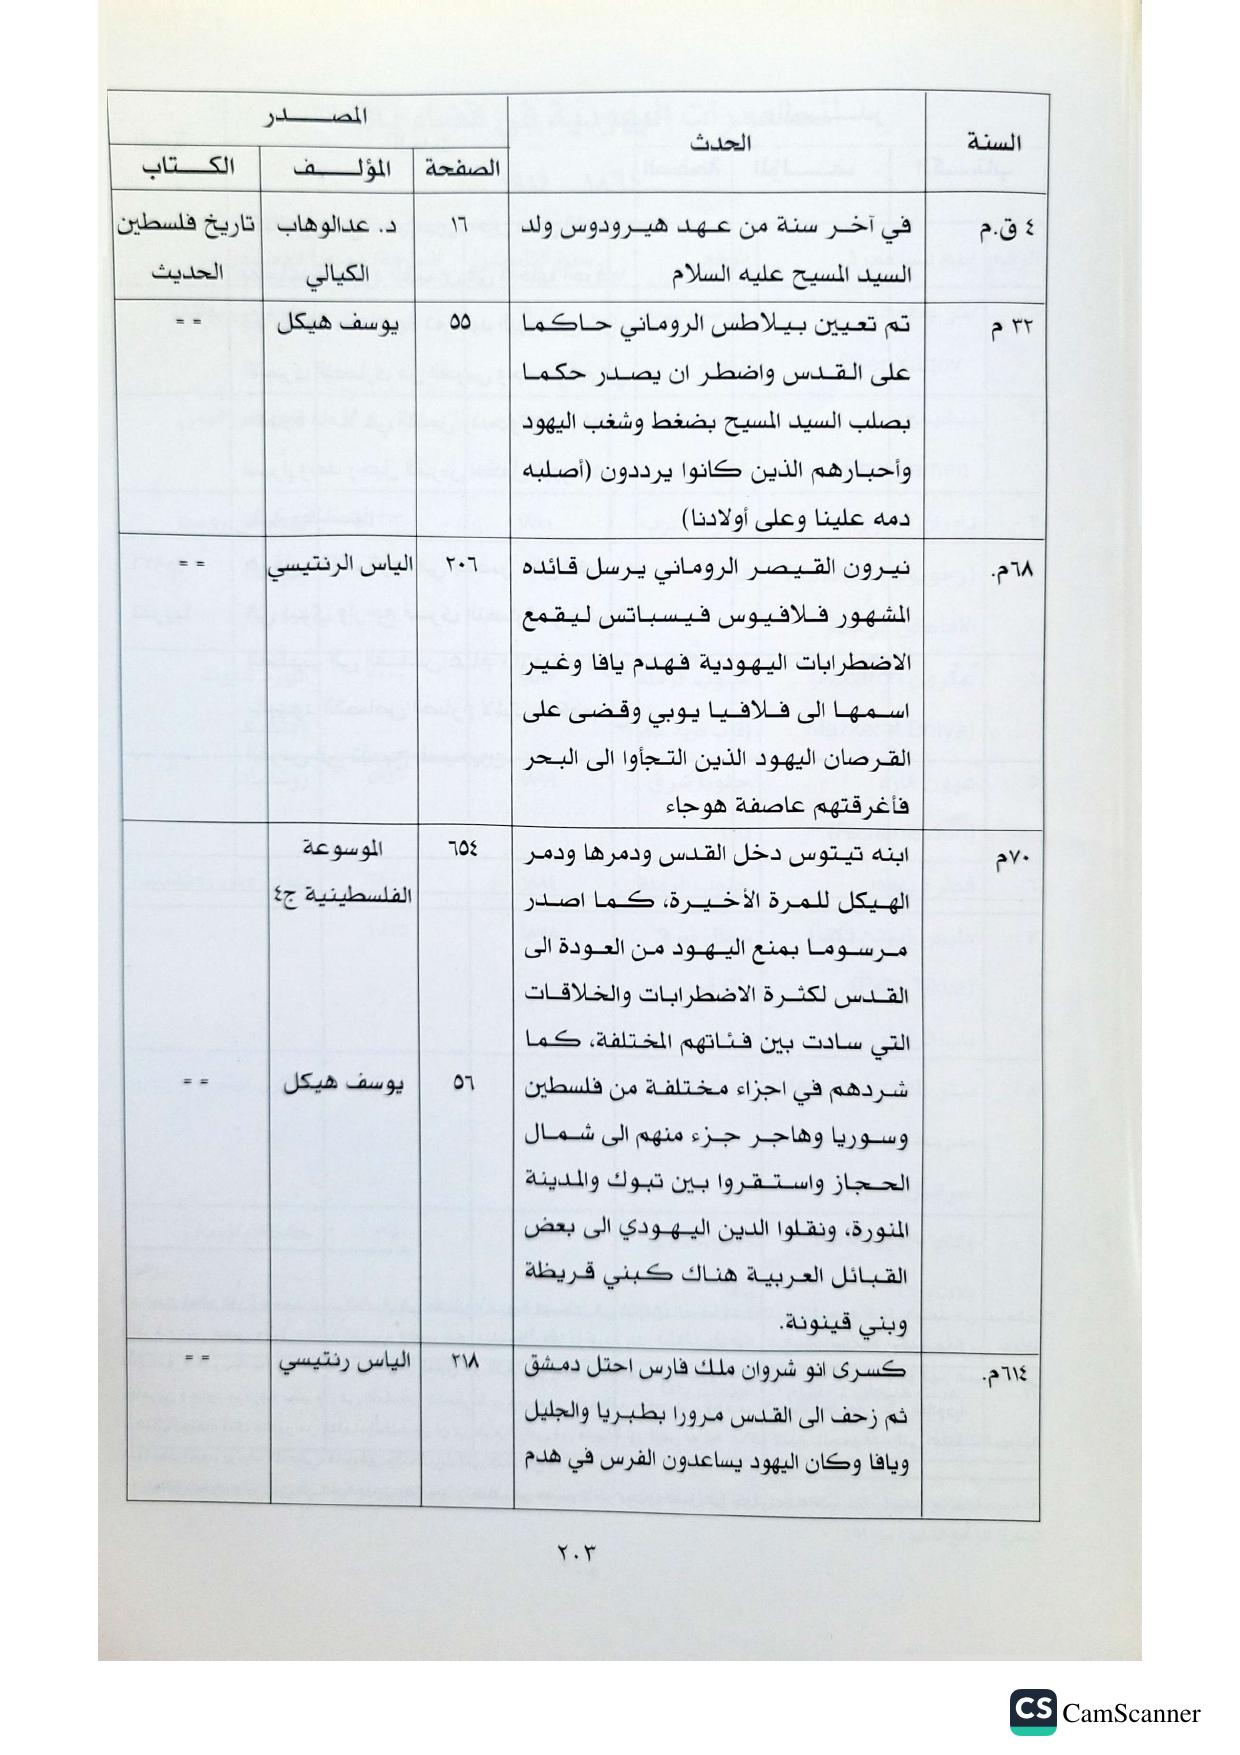 السنة
الحدث
المصدر
الصفحة
المؤلف
الكتاب
٤ ق.م
في آخر سنة من عهد هيرودوس ولد
السيد المسيح عليه السلام
١٦
د. عدالوهاب
الكيالي
تاريخ فلسطين
الحديث
٣٢ م
تم تعيين بيلاطس الروماني حاكما
على القدس واضطر ان يصدر حكما
بصلب السيد المسيح بضغط وشغب اليهود
وأحبارهم الذين كانوا يرددون (أصلبه
دمه علينا وعلى أولادنا)
٥٥
يوسف هيكل
= =
٦٨م.
نيرون القيصر الروماني يرسل قائده
المشهور فلافيوس فيسباتس ليقمع
الاضطرابات اليهودية فهدم يافا وغير
اسمها الى فلافيا يوبي وقضى على
القرصان اليهود الذين التجأوا الى البحر
فأغرقتهم عاصفة هوجاء
٢٠٦
الياس الرنتيسي
= =
٧٠م
ابنه تيتوس دخل القدس ودمرها ودمر
الهيكل للمرة الأخيرة، كما اصدر
مرسوما بمنع اليهود من العودة الى
القدس لكثرة الاضطرابات والخلاقات
التي سادت بين فئاتهم المختلفة، كما
شردهم في اجزاء مختلفة من فلسطين
وسوريا وهاجر جزء منهم الى شمال
الحجاز واستقروا بين تبوك والمدينة
المنورة، ونقلوا الدين اليهودي الى بعض
القبائل العربية هناك كبني قريظة
وبني قينونة.
٦٥٤
الموسوعة
الفلسطينية ج٤
٥٦
يوسف هيكل
= =
٦١٤م.
كسرى انو شروان ملك فارس احتل دمشق
ثم زحف الى القدس مرورا بطبريا والجليل
ويافا وكان اليهود يساعدون الفرس في هدم
٢١٨
الياس رنتيسي
= =
٢٠٣
CS CamScanner